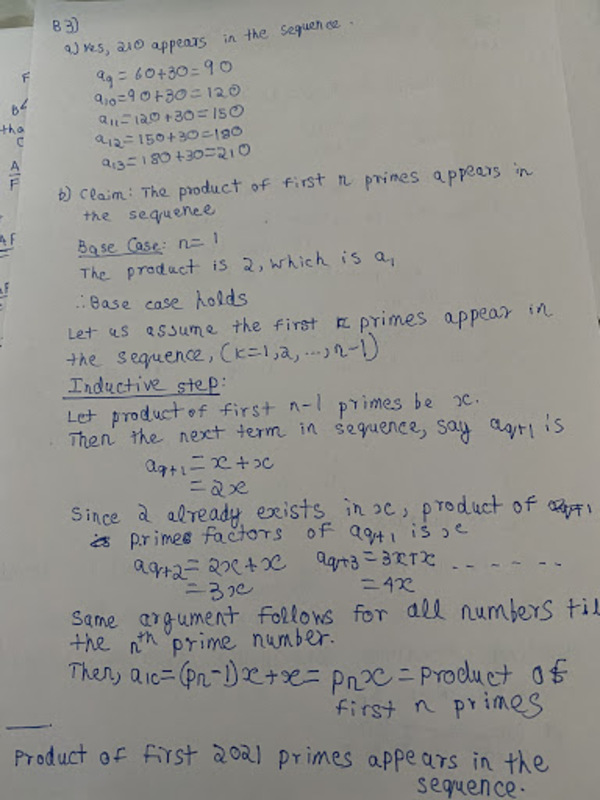 B3)
a) Yes, 210 appears in the sequence.
a₉ = 60+30 = 90
a₁₀ = 90+30 = 120
a₁₁ = 120+30 = 150
a₁₂ = 150+30 = 180
a₁₃ = 180+30 = 210
b) Claim: The product of first n primes appears in
the sequence
Base Case: n=1
The product is 2, which is a₁
∴ Base case holds
Let us assume the first k primes appear in
the sequence, (k=1,2, ..., n-1)
Inductive step:
Let product of first n-1 primes be x.
Then the next term in sequence, say a_{q+1} is
a_{q+1} = x+x
= 2x
Since 2 already exists in x, product of
prime factors of a_{q+1} is x
a_{q+2} = 2x+x a_{q+3} = 3x+x - - - - - -
= 3x = 4x
Same argument follows for all numbers til
the nᵗʰ prime number.
Then, a_{k} = (pₙ-1)x+x = pₙx = product of
first n primes
Product of first 2021 primes appears in the
sequence.